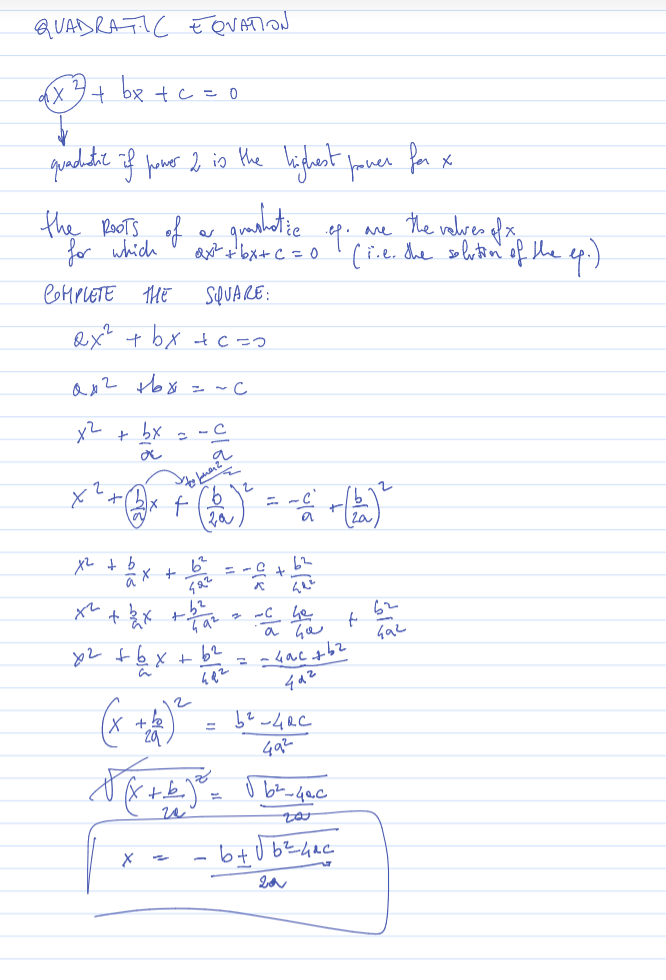 QUADRATIC EQUATION
ax² + bx + c = 0
quadratic if power 2 is the highest power for x
the ROOTS of a quadratic eq. are the values of x
for which ax² + bx + c = 0 (i.e. the solution of the eq.)
COMPLETE THE SQUARE:
ax² + bx + c = 0
ax² + bx = -c
x² + bx/a = -c/a
x² + (b/a)x + (b/2a)² = -c/a + (b/2a)²
x² + b/a x + b²/4a² = -c/a + b²/4a²
x² + b/a x + b²/4a² = -c/a 4a/4a + b²/4a²
x² + b/a x + b²/4a² = (-4ac + b²)/4a²
(x + b/2a)² = (b² - 4ac)/4a²
√(x + b/2a)² = √(b² - 4ac)/2a
x = (-b ± √(b² - 4ac))/2a